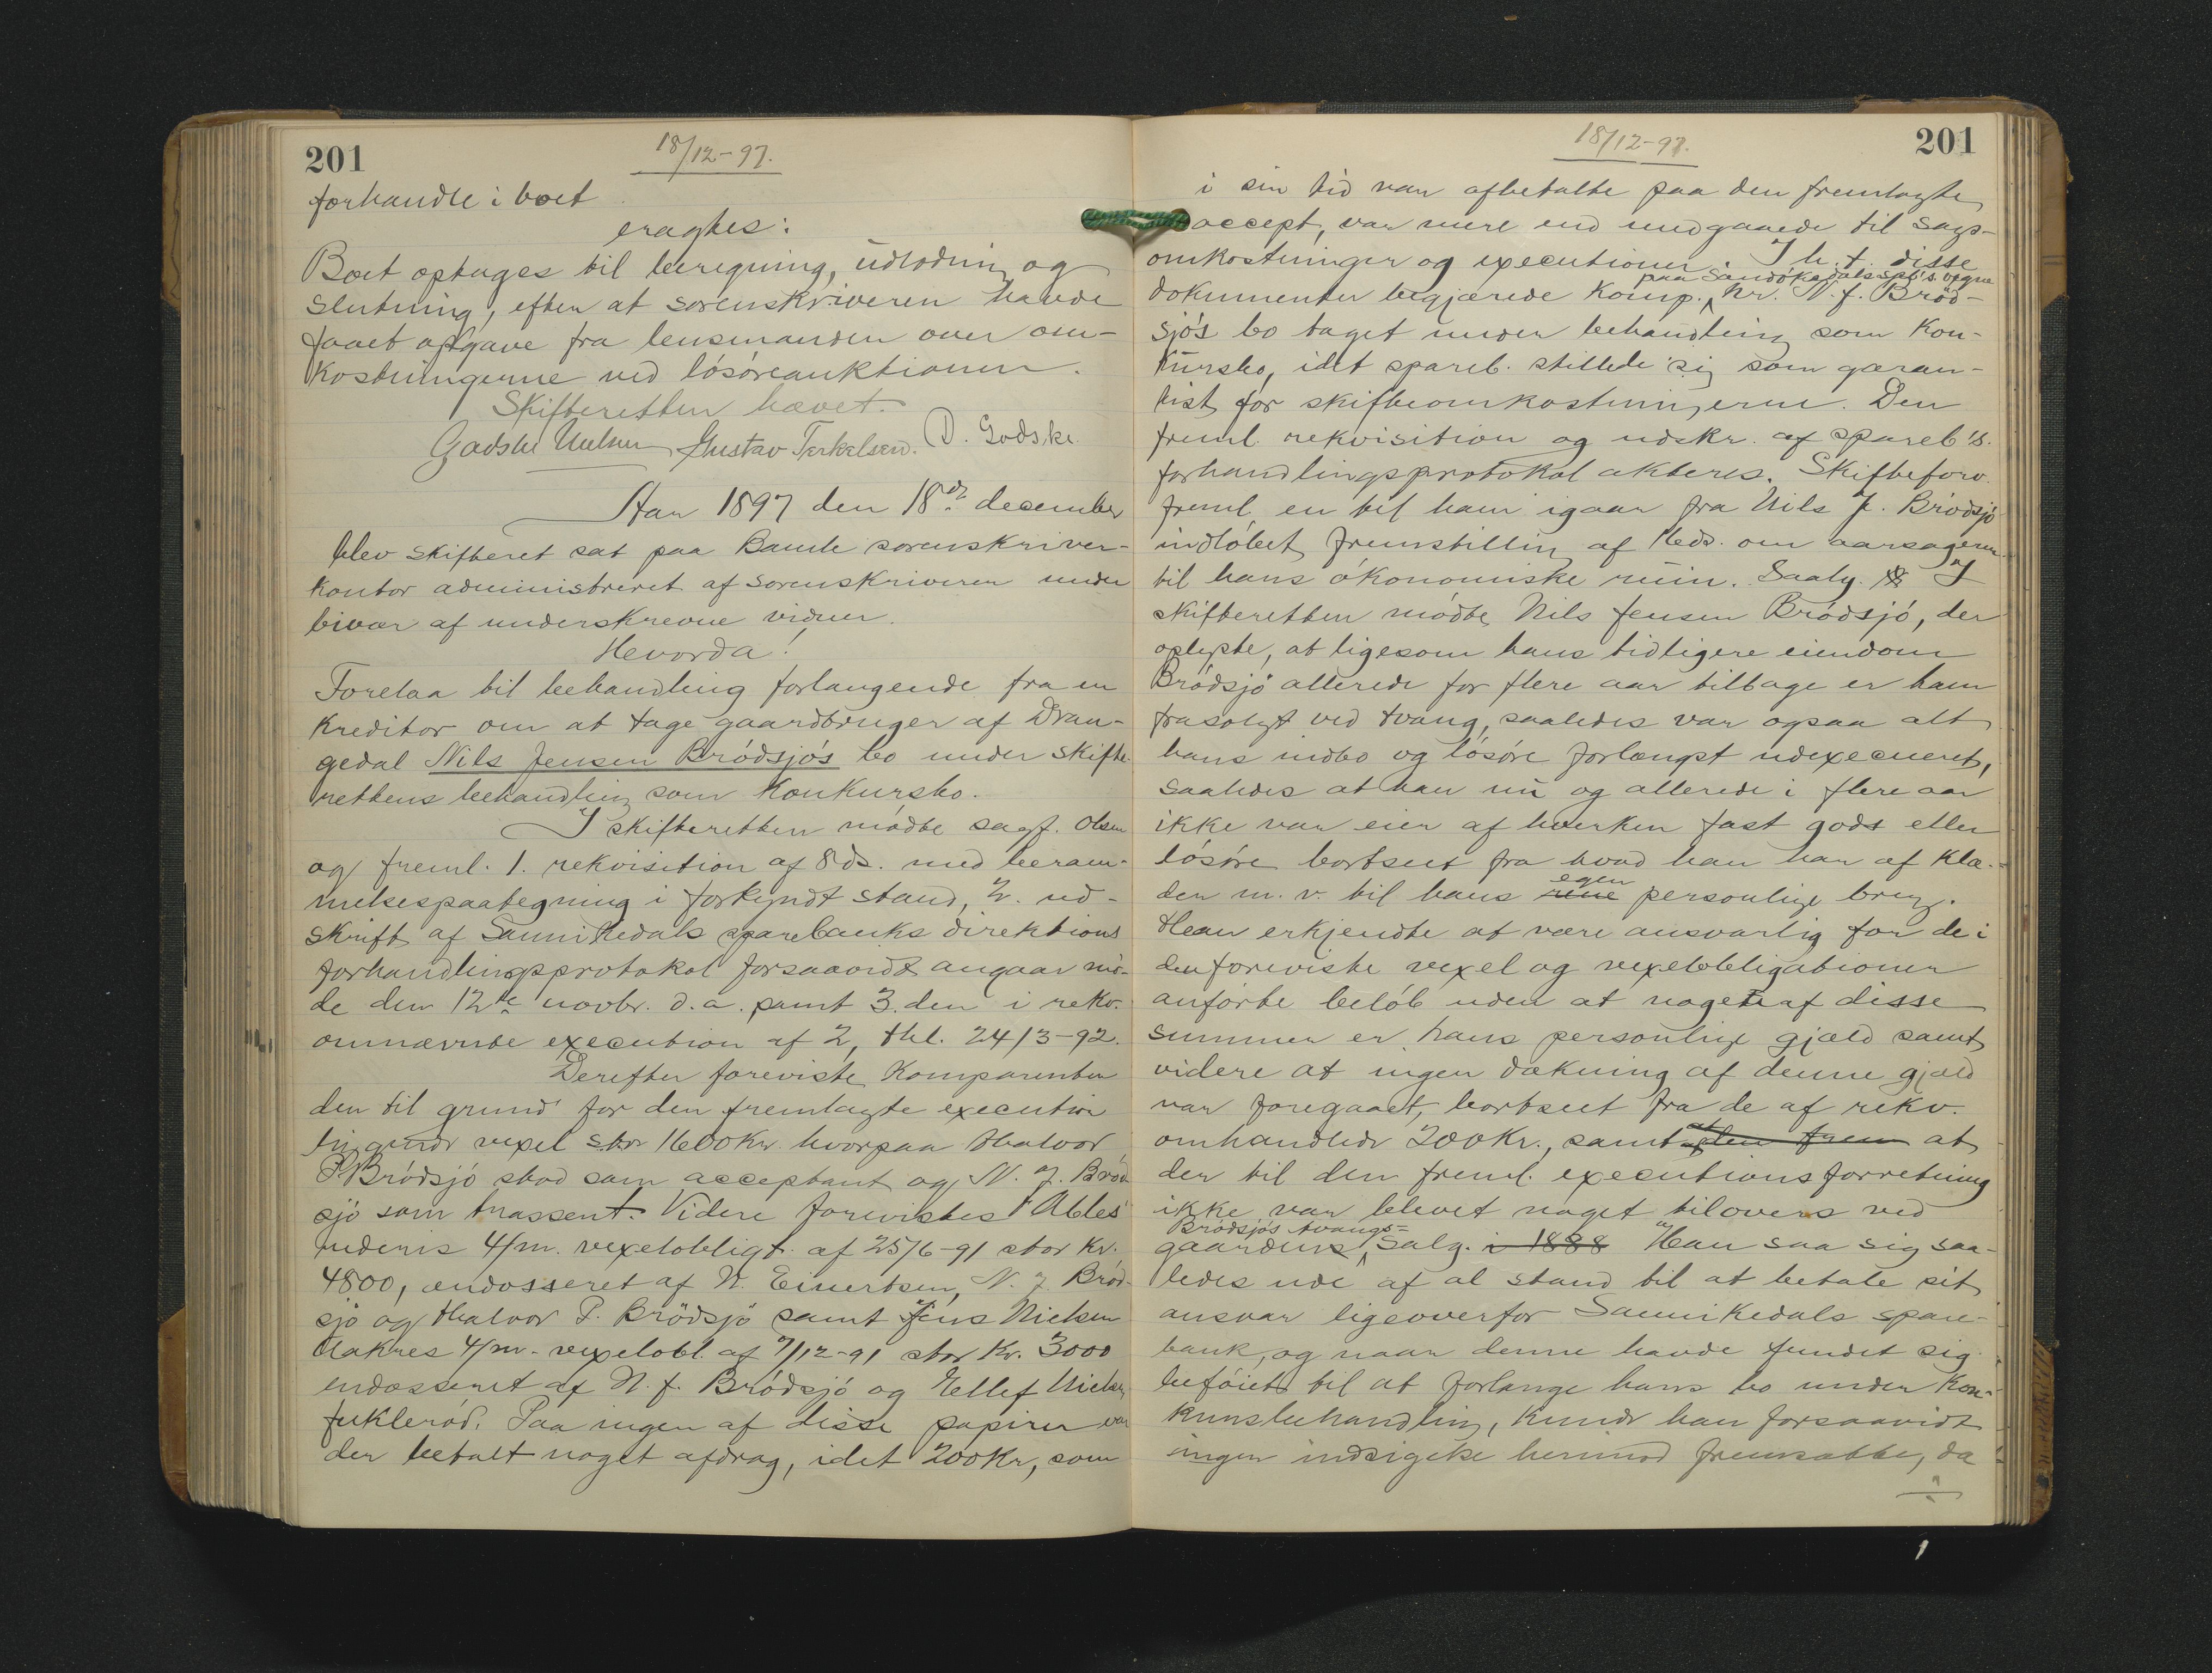 201
18/12-97.
forhandle i boet
eragtes:
Boet optages til beregning, udlodning og
slutning, efter at sorenskriveren havde
faaet opgave fra lensmanden over om-
kostningerne ved lösöreauktionen.
Skifteretten hævet.
Godske Nielsen Gustav Terkelsen. D. Godske
Aar 1897 den 18de december
blev skifteret sat paa Bamle sorenskriver-
kontor administreret af sorenskriveren under
bivær af underskrevne vidner.
Hvorda!
Forelaa til behandling forlangende fra en
kreditor om at tage gaardbruger af Dran-
gedal Nils Jensen Brödsjö's bo under skifte-
rettens behandling som konkursbo.
I skifteretten mödte sagf. Olsen
og freml. 1. rekvisition af 8ds. med beram-
melsespaategning i forkyndt stand, 2. ud-
skrift af Sannikedals sparebanks direktions
forhandlingsprotokol forsaavidt angaar mö-
de den 12te novbr. d.a. samt 3. den i rekv.
omnævnte execution af 2, thl. 24/3-92.
Derefter foreviste komparenten
den til grund for den fremlagte execution
liggende vexel stor 1600 Kr. hvorpaa Halvor
P. Brödsjö stod som acceptant og N. J. Bröd-
sjö som trassent. Videre forevistes Ables
4/m. vexelobligt. af 25/6-91 stor Kr.
4800, endosseret af N. Einertsen, N. J. Bröd-
sjö og Halvor P. Brödsjö samt Jens Nielsen
Aakres 4/m. vexelobl. af 7/12-91 stor Kr. 3000
endosseret af N. J. Brödsjö og Ellef Nielsen
Fukleröd. Paa ingen af disse papirer var
der betalt noget afdrag, idet 200 Kr, som
18/12-97.
201
i sin tid var afbetalte paa den fremlagte
accept, var mere end medgaaede til sags-
omkostninger og executioner. I h. t. disse
paa Sandökedals spb's. vegne
dokumenter begjærede komp. hr. N. J. Bröd-
sjö's bo taget under behandling som kon-
kursbo, idet spareb. stillede sig som garan-
tist for skifteomkostningerne. Den
freml. rekvisition og udskr. af spareb's.
forhandlingsprotokol akteres. Skifteforv.
freml. en til ham igaar fra Nils J. Brödsjö
indlöbet fremstilling af 16ds. om aarsagerne
til hans ökonomiske ruin. Saalg. I
skifteretten mödte Nils Jensen Brödsjö, der
oplyste, at ligesom hans tidligere eiendom
Brödsjö allerede for flere aar tilbage er ham
frasolgt ved tvang, saaledes var ogsaa alt
hans indbo og lösöre forlængst udexecveret,
saaledes at han nu og allerede i flere aar
ikke var eier af hverken fast gods eller
lösöre bortseet fra hvad han har af klæ-
egen
der m. v. til hans rene personlige brug.
Han erkjendte at være ansvarlig for de i
den foreviste vexel og vexelobligationer
anförte belöb uden at noget af disse
summer er hans personlige gjæld samt
videre at ingen dækning af denne gjæld
var foregaaet, bortseet fra de af rekv.
omhandlede 200 Kr., samt den frem at
der til den freml. executionsforretning
ikke var blevet noget tilovers ved
Brödsjö's tvangs=
gaardens salg. i 1888 Han saa sig saa-
ledes ude af al stand til at betale sit
ansvar ligeoverfor Sannikedals spare-
bank, og naar denne havde fundet sig
beföiet til at forlange hans bo under kon-
kursbehandling, kunde han forsaavidt
ingen indsigelse herimod fremsætte, da